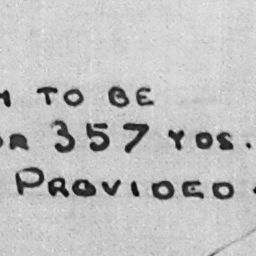 TO BE
357 YDS.
PROVIDED